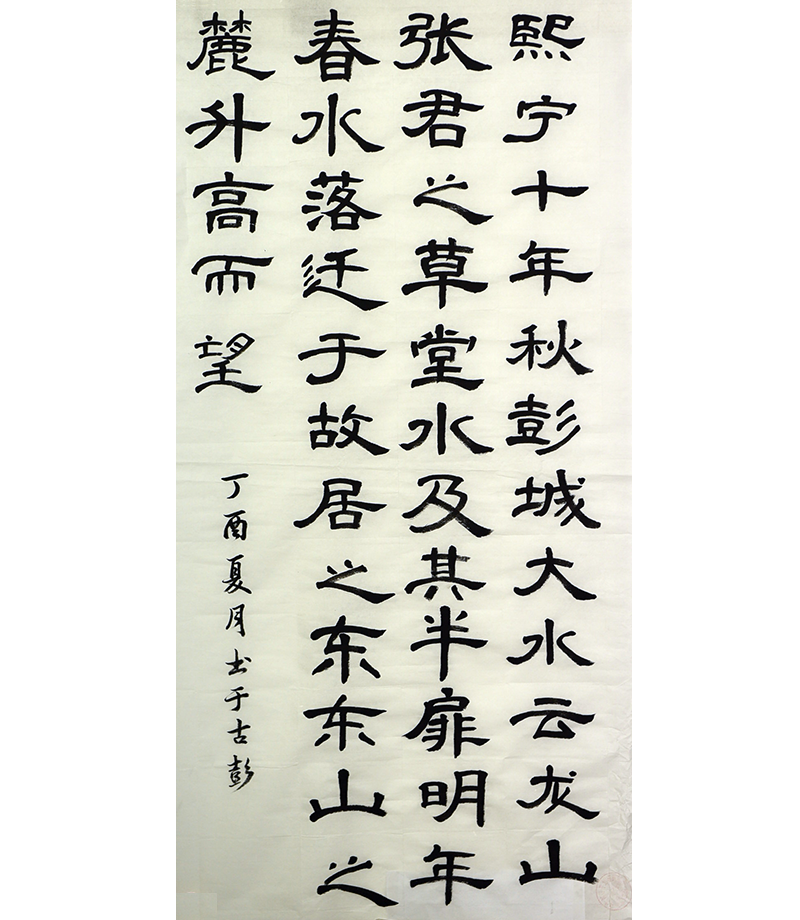 熙宁十年秋彭城大水云龙山
张君之草堂水及其半扉明年
春水落迁于故居之东东山之
麓升高而望
丁酉夏月书于古彭